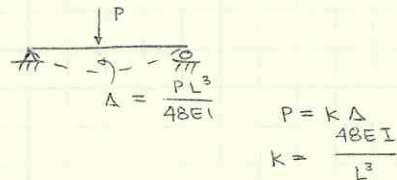 P
Δ = PL³ / 48EI
P = K Δ
K = 48EI / L³